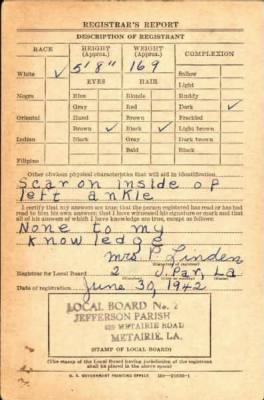 REGISTRAR'S REPORT
DESCRIPTION OF REGISTRANT
RACE HEIGHT (Approx.) WEIGHT (Approx.) COMPLEXION
5' 8" 169
White ✓ EYES HAIR Sallow
Light
Negro Blue Blonde Ruddy
Gray Red Dark ✓
Oriental Hazel Brown Freckled
Brown ✓ Black ✓ Light brown
Indian Black Gray Dark brown
Bald Black
Filipino
Other obvious physical characteristics that will aid in identification
Scar on inside of
left ankle
I certify that my answers are true; that the person registered has read or has had
read to him his own answers; that I have witnessed his signature or mark and that
all of his answers of which I have knowledge are true, except as follows:
None to my
knowledge
Mrs. P. Linden
Registrar for Local Board 2 J. Par, La
Date of registration June 30, 1942
LOCAL BOARD No. 2
JEFFERSON PARISH
METAIRIE ROAD
METAIRIE, LA.
(STAMP OF LOCAL BOARD)
(The stamp of the Local Board having jurisdiction of the registrant
shall be placed in the above space)
U. S. GOVERNMENT PRINTING OFFICE